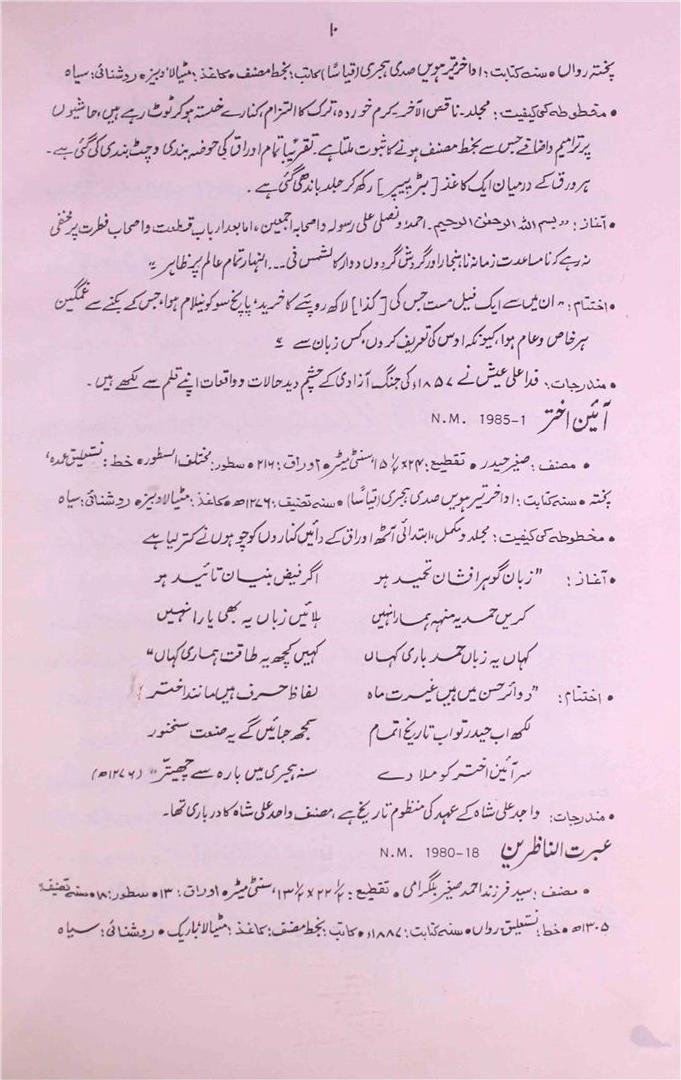 ۱۰
پختہ رواں • سنہ کتابت: اواخر تیرھویں صدی ہجری (قیاساً) کاتب: بخط مصنف • کاغذ: مٹیالا دبیز • روشنائی: سیاہ
• مخطوطہ کی کیفیت: مجلد۔ ناقص الآخر۔ کرم خوردہ، ترک کا التزام، کنارے خستہ ہو کر ٹوٹ رہے ہیں، حاشیوں
پر ترامیم و اضافے جس سے بخط مصنف ہونے کا ثبوت ملتا ہے۔ تقریباً تمام اوراق کی حوضہ بندی و چٹ بندی کی گئی ہے۔
ہر ورق کے درمیان ایک کاغذ [بٹر پیپر] رکھ کر جلد باندھی گئی ہے۔
• آغاز: "بسم اللہ الرحمٰن الرحیم۔ احمدہٗ و نصلی علی رسولہ و اصحابہ اجمعین، اما بعد ارباب فطنت و اصحاب فطرت پر مخفی
نہ رہے کہ نامساعدت زمانہ ناہنجار اور گردش گردوں دوار کالشمس فی ... النہار تمام عالم پر ظاہر ہے"
• اختتام: "ان میں سے ایک فیل مست جس کی [کذا] لاکھ روپئے کا خرید، پانچ سو کو نیلام ہوا، جس کے بکنے سے غمگین
ہر خاص و عام ہوا، کیونکہ اوس کی تعریف کروں، کس زبان سے"
• مندرجات: فدا علی عیش نے ۱۸۵۷ء کی جنگ آزادی کے چشم دید حالات و واقعات اپنے قلم سے لکھے ہیں۔
آئین اختر N.M. 1985-1
• مصنف: صغیر حیدر • تقطیع: ۲۴×۱۵½ سنٹی میٹر • اوراق: ۲۱۶ • سطور: مختلف السطور • خط: نستعلیق عمدہ،
پختہ • سنہ کتابت: اواخر تیرھویں صدی ہجری (قیاساً) • سنہ تصنیف: ۱۲۷۶ھ • کاغذ: مٹیالا دبیز • روشنائی: سیاہ
• مخطوطہ کی کیفیت: مجلد و مکمل، ابتدائی آٹھ اوراق کے دائیں کناروں کو چوہوں نے کتر لیا ہے
• آغاز: "زبان گوہر افشان تحمید ہو اگر فیض بنیان تائید ہو
کریں حمد یہ منہہ ہمارا نہیں ہلائیں زباں یہ بھی یارا نہیں
کہاں یہ زباں حمد باری کہاں کہیں کچھ یہ طاقت ہماری کہاں"
• اختتام: "دوائر حسن میں ہیں غیرت ماہ لفاظ حرف ہیں مانند اختر
لکھ اب حیدر تو اب تاریخ اتمام سمجھ جائیں گے یہ صنعت سخنور
سر آئین اختر کو ملا دے سنہ ہجری میں بارہ سے چھہتر" (۱۲۷۶ھ)
• مندرجات: واجد علی شاہ کے عہد کی منظوم تاریخ ہے، مصنف واجد علی شاہ کا درباری تھا۔
عبرت الناظرین N.M. 1980-18
• مصنف: سید فرزند احمد صغیر بلگرامی • تقطیع: ۲۲½×۱۳½، سنٹی میٹر • اوراق: ۱۳ • سطور: ۱۸ • سنہ تصنیف:
۱۳۰۵ھ • خط: نستعلیق رواں • سنہ کتابت: ۱۸۸۷ء • کاتب: بخط مصنف • کاغذ: مٹیالا باریک • روشنائی: سیاہ